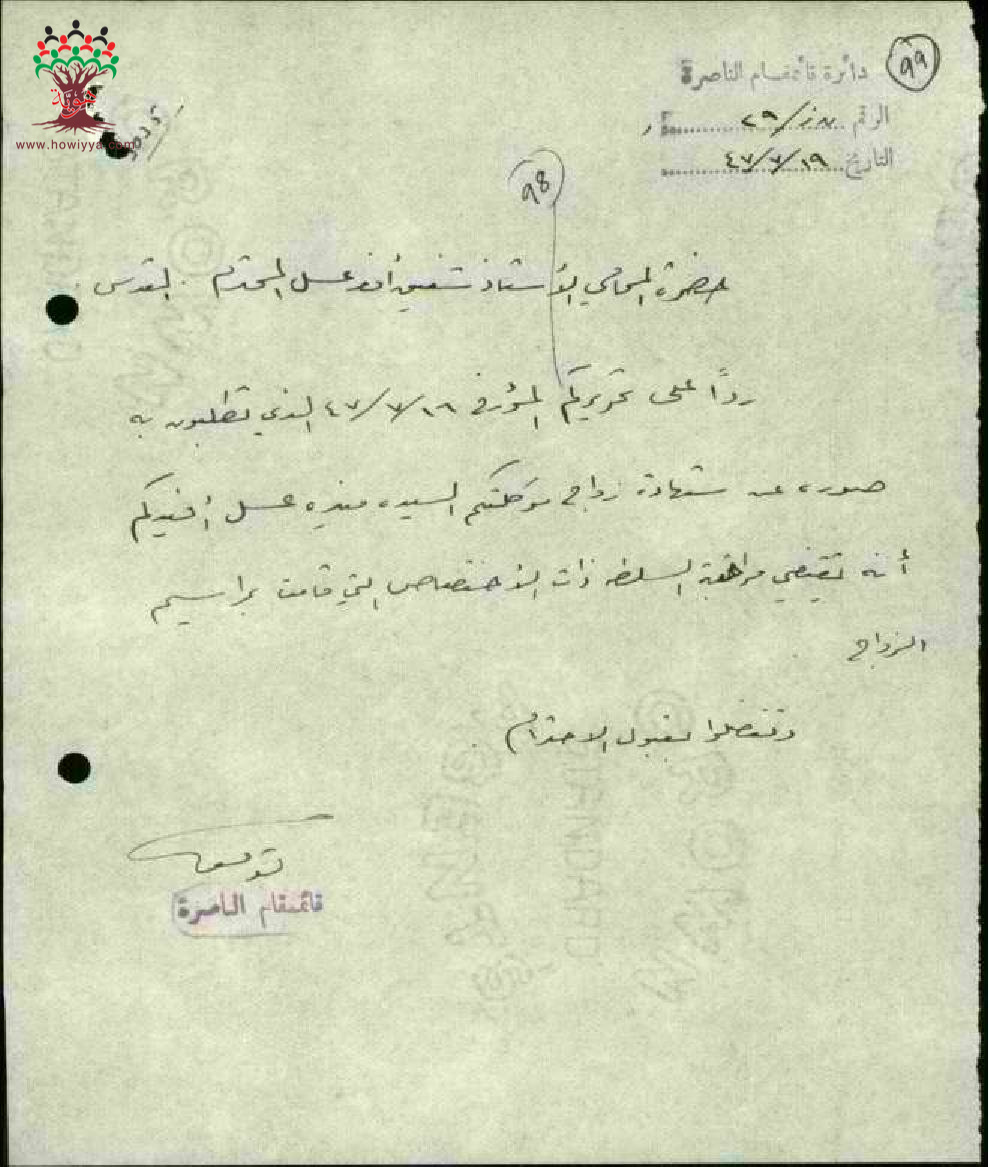 هوية
www.howiyya.com
99
دائرة قائمقام الناصرة
الرقم ٢٩/
التاريخ ٤٧/٧/١٩
98
حضرة المحامي الأستاذ شفيق أفندي عسل المحترم . القدس .
ردًا على تحريركم المؤرخ ٤٧/٧/١٨ الذي تطلبون به
صوره عن شهادة زواج موكلتكم السيده منيره عسل أفيدكم
أنه يقتضي مراجعة السلطه ذات الأختصاص التي قامت بمراسيم
الزواج .
وتفضلوا بقبول الاحترام .
قائمقام الناصرة